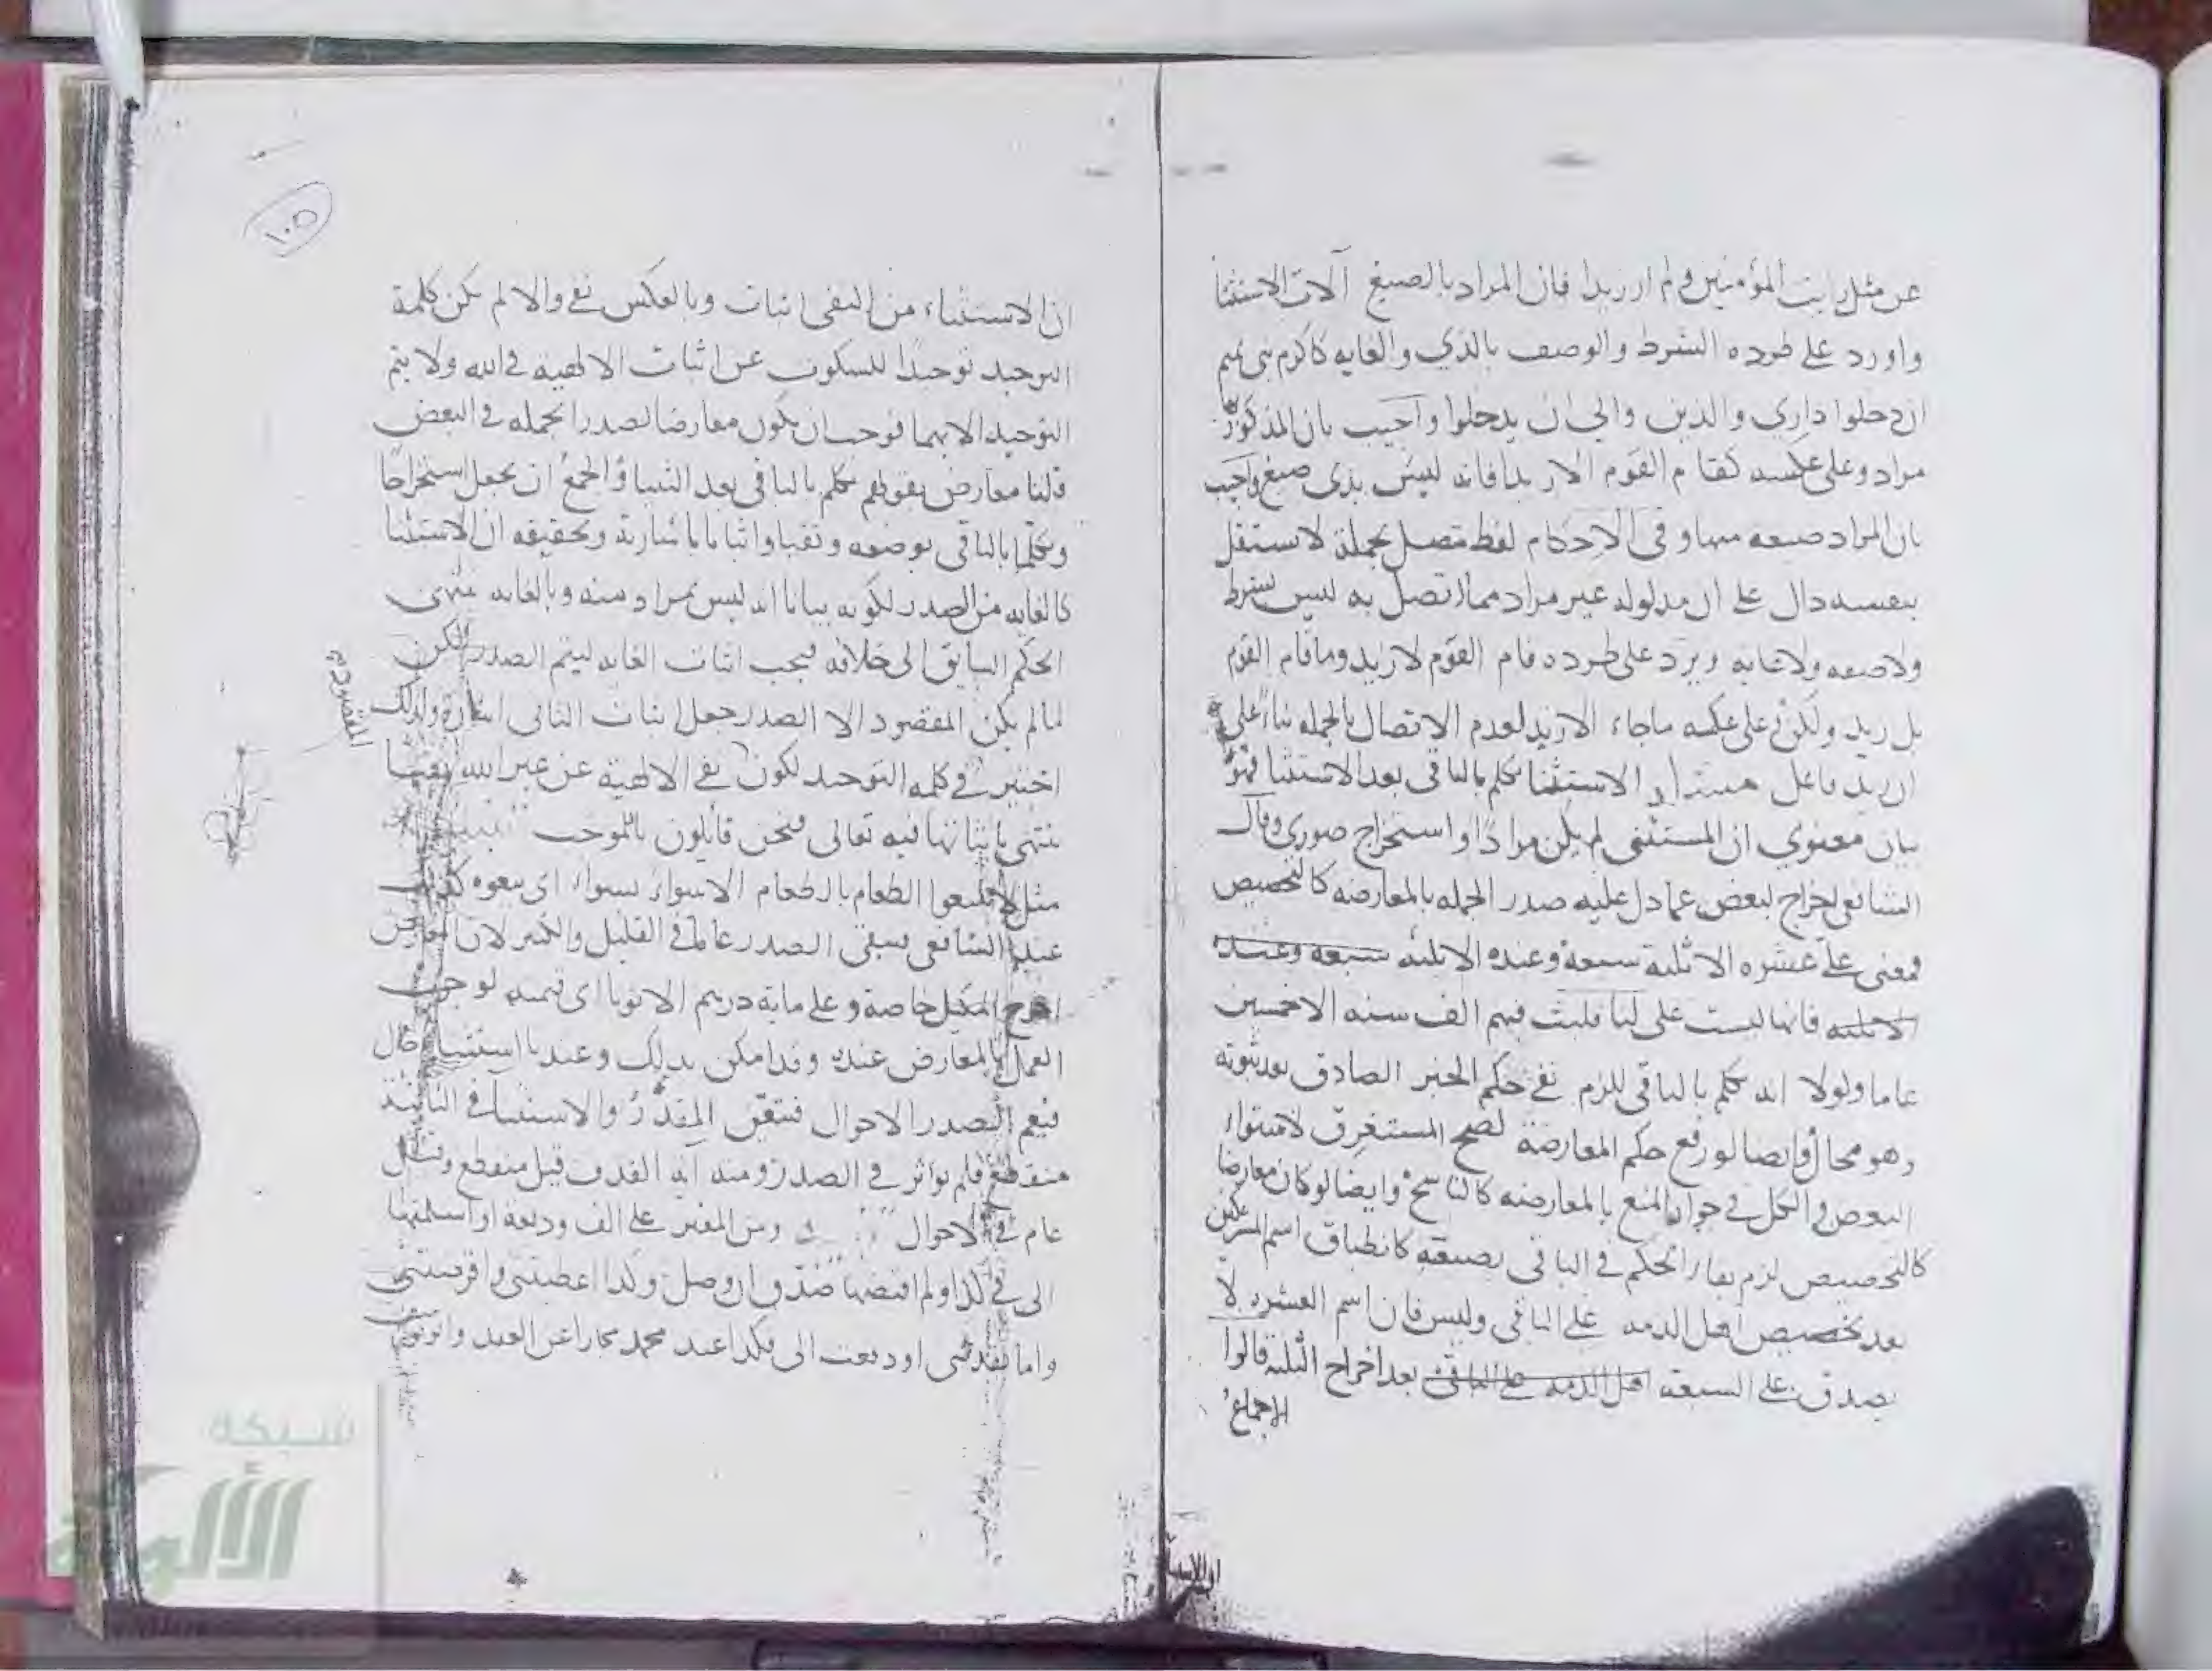 عن مثل رايت المؤمنين ولم ار زيدا فان المراد بالصيغ آلات الاستثنا
واورد على طرده الشرط والوصف بالذي والغايه كاكرم بني تميم
ان دخلوا داري والذين والى ان يدخلوا واجيب بان المذكور
مراد وعلى عكسه كقام القوم الا زيدا فانه ليس بذي صيغ واجيب
بان المراد صيغه منها وفي الاحكام لفظ متصل بجملة لا يستقل
بنفسه دال على ان مدلوله غير مراد مما اتصل به ليس بشرط
ولا صفه ولا غايه ويرد على طرده قام القوم لا زيد وما قام القوم
بل زيد ولكن وعلى عكسه ما جاء الا زيد لعدم الاتصال بالجمله بناء على
ان زيد فاعل الاستثنا تكلم بالباقي بعد الاستثنا فهو
بيان معنوي ان المستثنى لم يكن مرادا واستخراج صوري وقال
الشافعي اخراج لبعض عما دل عليه صدر الجمله بالمعارضه كالتخصيص
فمعنى علي عشره الا ثلثه سبعه وعنده الا ثلثه سبعه وعنده
الا ثلثه فانها ليست علي لنا فلبث فيهم الف سنه الا خمسين
عاما ولولا انه تكلم بالباقي للزم نفي حكم الخبر الصادق بعد ثبوته
وهو محال وايضا لو رفع حكم المعارضة لصح المستغرق لاستواء
البعض والكل في جواز المنع بالمعارضه كالناسخ وايضا لو كان معارضا
كالتخصيص لزم بقاء الحكم في الباقي بصيغته كانطباق اسم المشركين
بعد تخصيص اهل الذمه على الباقي وليس فان اسم العشره لا
يصدق على السبعه اهل الذمه على الباقي بعد اخراج الثلثه قالوا
الاجماع
١٠٥
ان الاستثناء من النفي اثبات وبالعكس نفي والا لم تكن كلمة
التوحيد توحيدا للسكوت عن اثبات الالهيه في الله ولا يتم
التوحيد الا بهما فوجب ان يكون معارضا لصدر الجمله في البعض
قلنا معارض بقولهم تكلم بالباقي بعد الثنيا والجمع ان يجعل استخراجا
وتكلما بالباقي بوضعه ونفيا واثباتا باشارته وتحقيقه ان الاستثنا
كالغايه من الصدر لكونه بيانا انه ليس بمراد منه وبالغايه ينتهي
الحكم السابق الى خلافه فيجب اثبات الغايه ليتم الصدر لكن
لما لم يكن المقصود الا الصدر جعل اثبات الثاني اشارة ولذلك
اختير في كلمه التوحيد لكون نفي الالهية عن غير الله
المقصود
ينتهي باثباتها فيه تعالى فنحن قايلون بالموجب
مثل لا تبيعوا الطعام بالطعام الا سواء بسواء اي بيعوه
عند الشافعي فبقى الصدر عاما في القليل والكثير لان
اخرج المكيل خاصة وعلي مايه درهم الا ثوبا اي قيمته لوجوب
العمل بالمعارض عنده وقد امكن بذلك وعندنا استثنا حال
فيعم الصدر الاحوال فتعين المقدر والاستثنا في الثانية
منقطع فلم يؤثر في الصدر ومنه آيه القذف قيل منقطع وقيل
عام في الاحوال ومن المغير علي الف وديعه او اسلمتها
الى في كذا ولم اقبضها صدق ان وصل وكذا اعطيتني واقرضتني
واما نقدتني او دفعت الي فكذا عند محمد مجازا عن العقد
شبكة
الألوكة